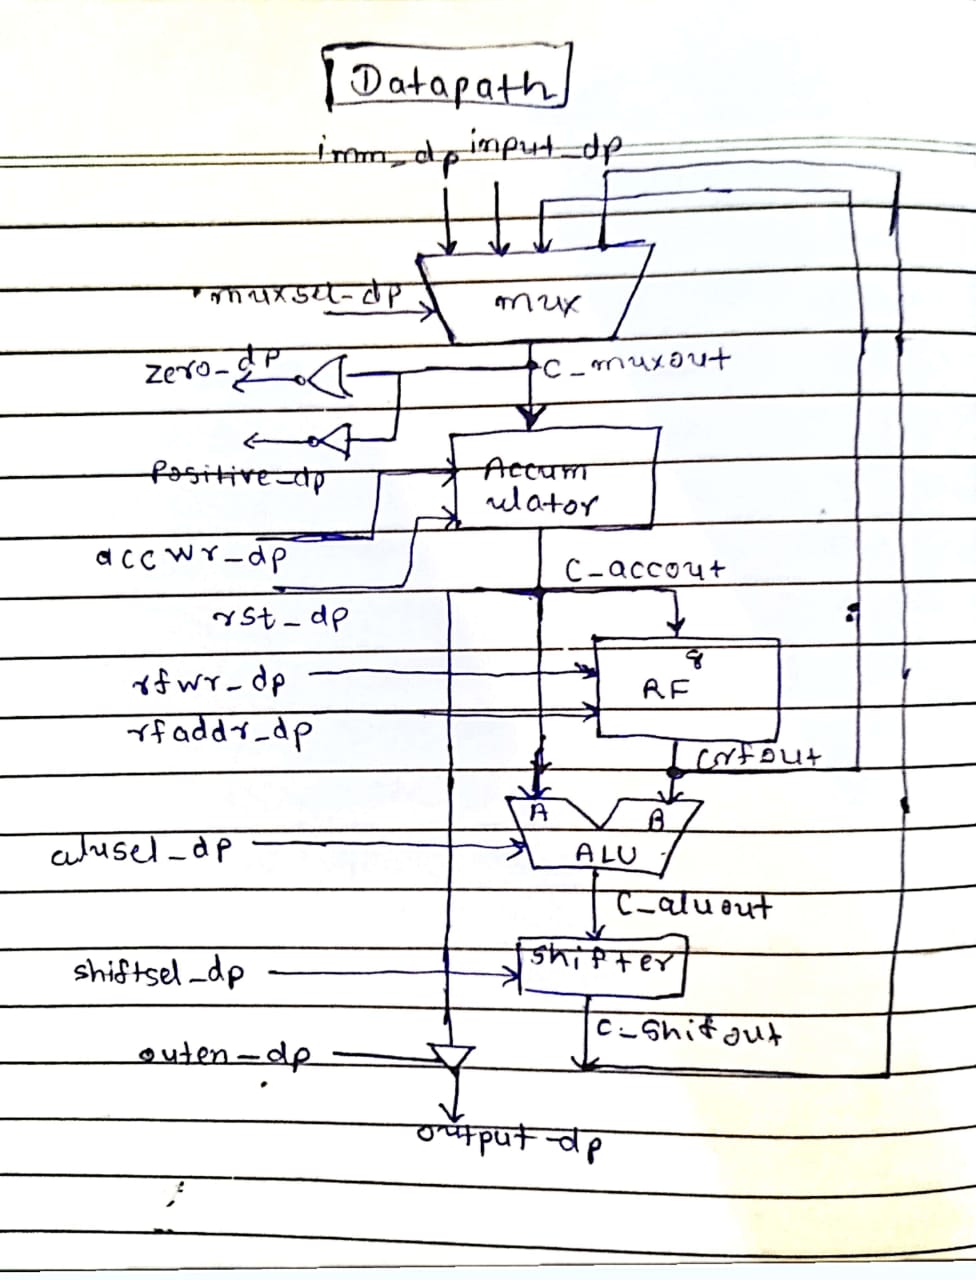 Datapath
imm_dp input_dp
muxsel-dp
mux
zero-dp
C-muxout
Positive-dp
Accum
ulator
accwr-dp
C-accout
rst-dp
8
rfwr-dp
RF
rfaddr-dp
Crfout
A
B
alusel-dp
ALU
C-aluout
shifter
shiftsel-dp
C-shifout
outen-dp
output-dp